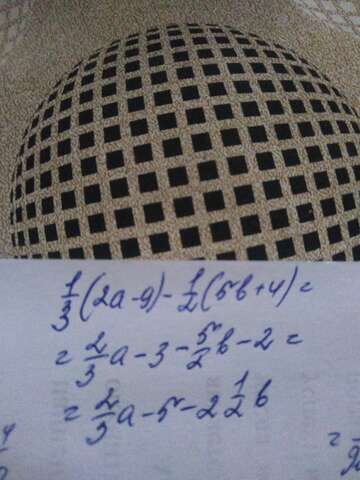 1/3(2a-9)-1/2(5b+4)=
=2/3a-3-5/2b-2=
=2/3a-5-2 1/2b